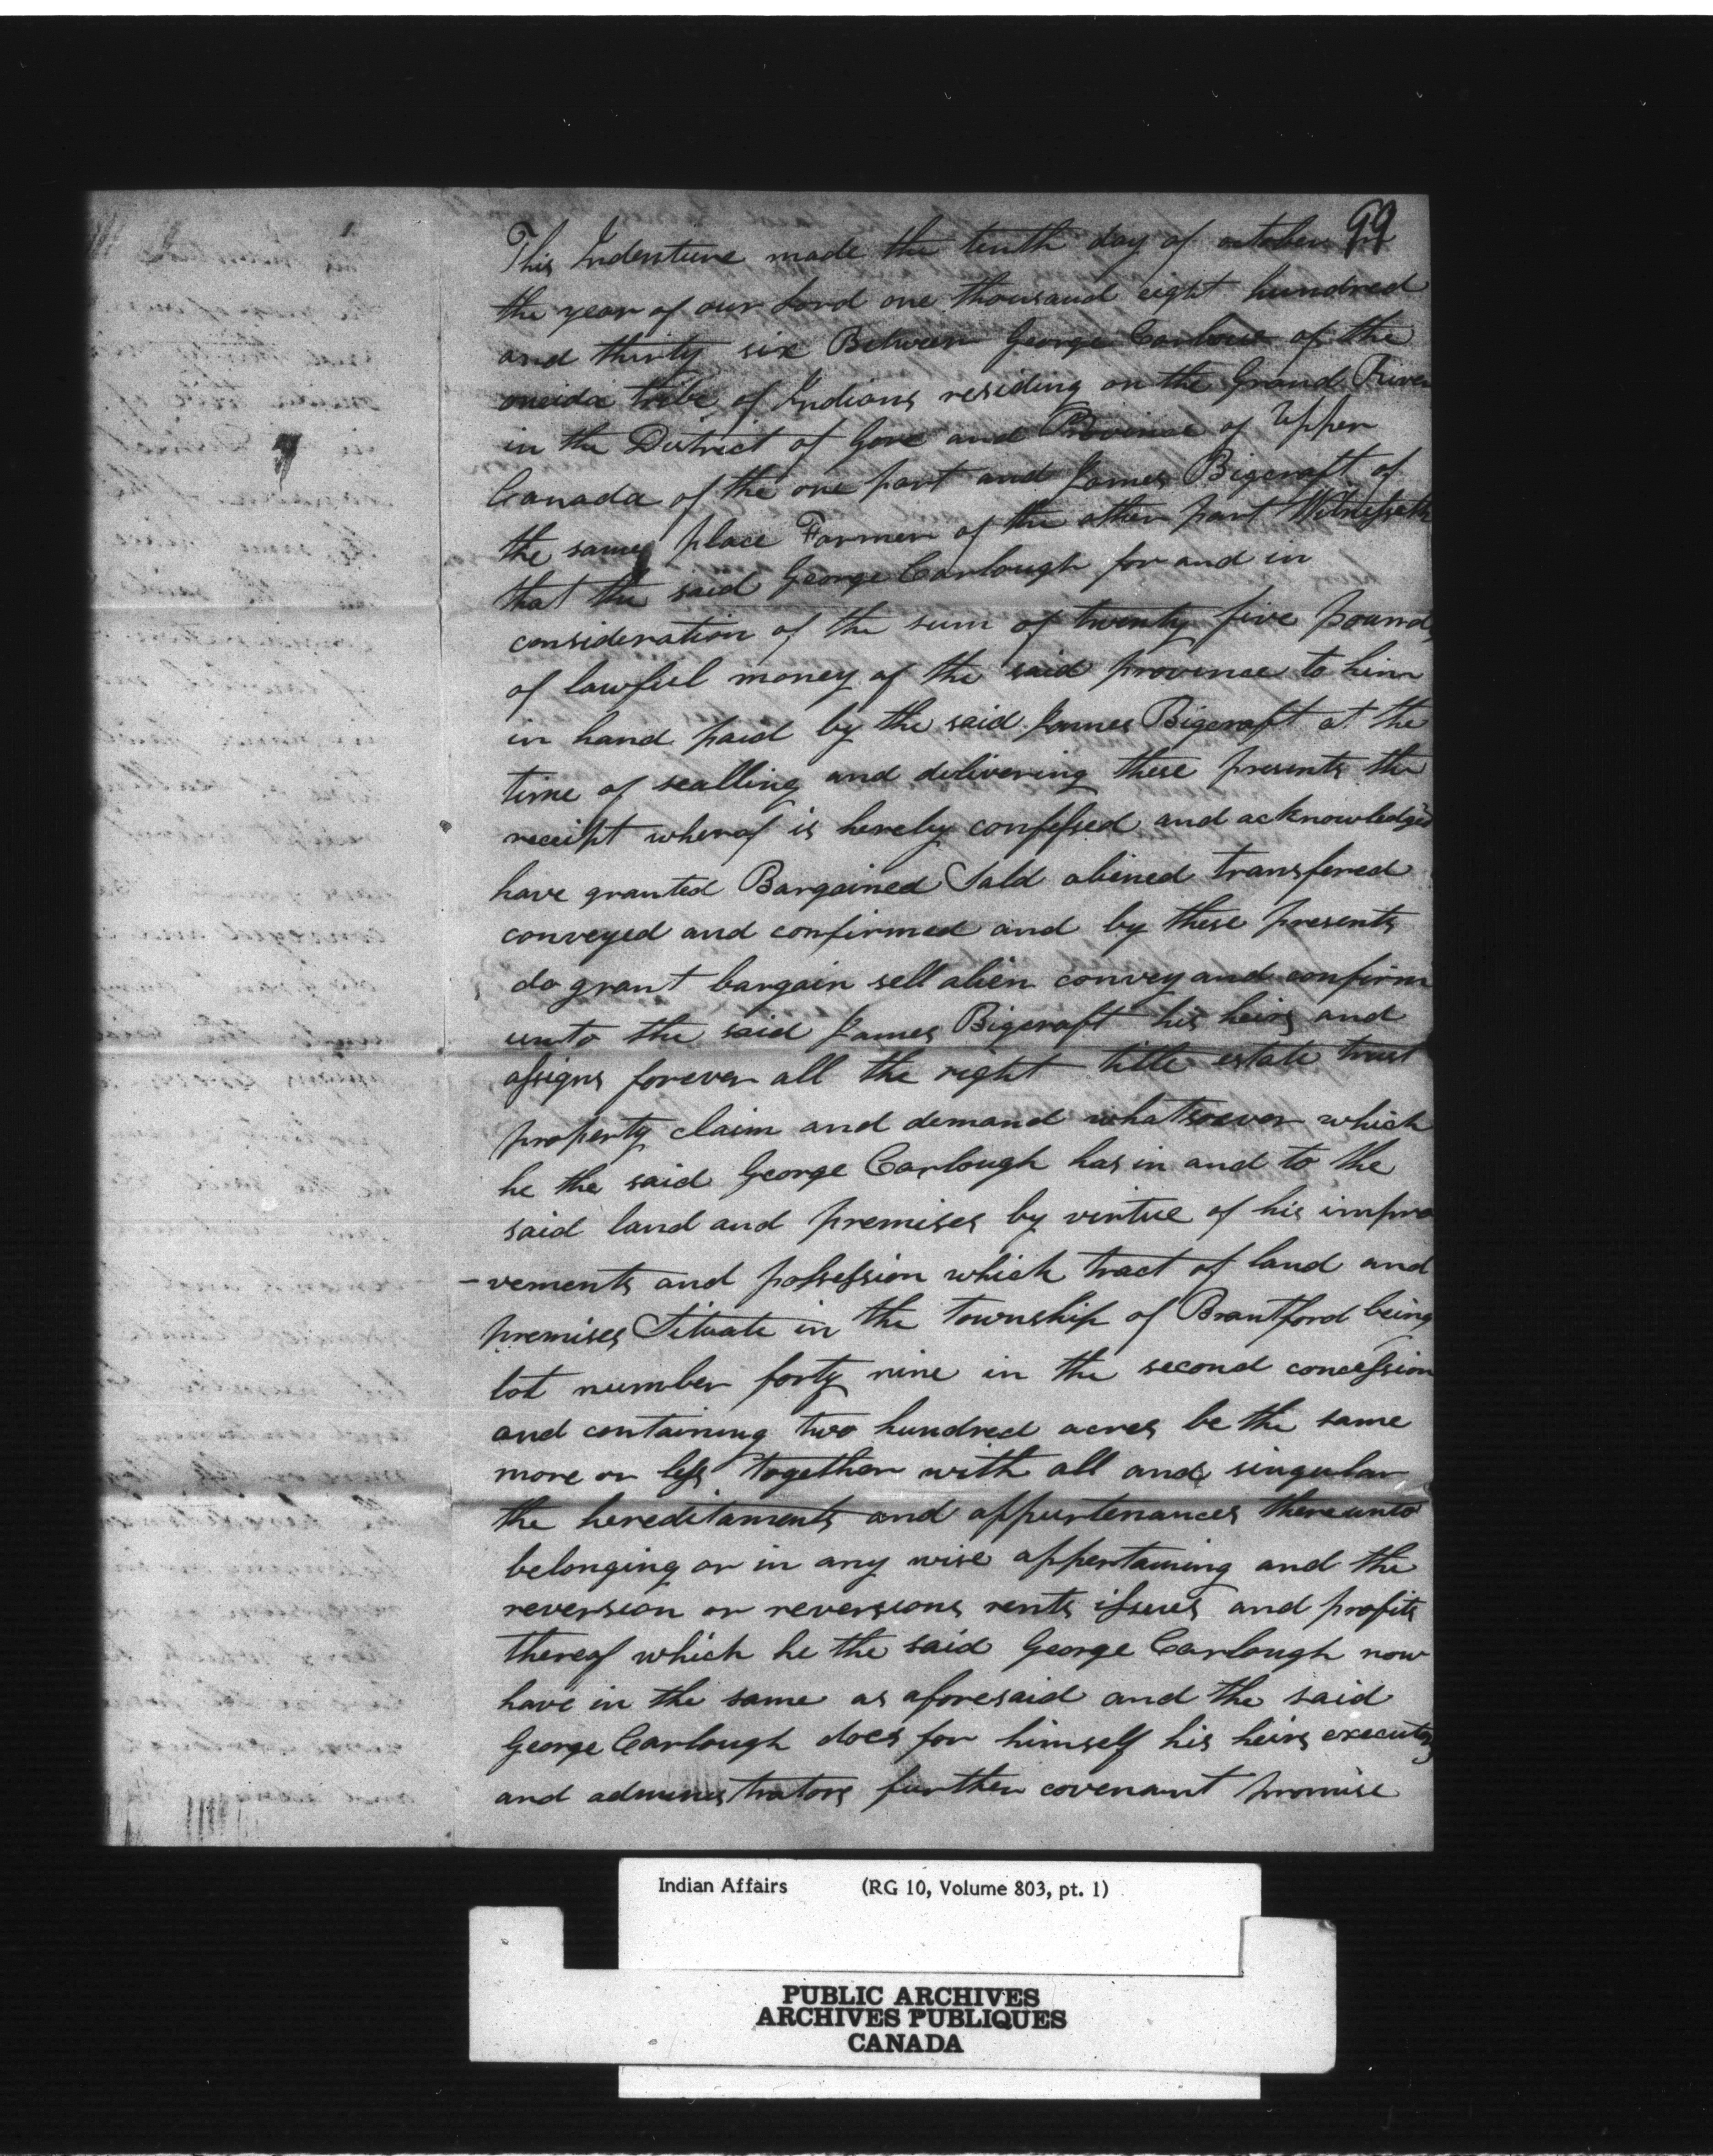 99
This Indenture made the tenth day of october in
the year of our Lord one thousand eight hundred
and thirty six Between George Carlow of the
oneida tribe of Indians residing on the Grand River
in the District of Gore and Province of Upper
Canada of the one part and James Bigcraft of
the same place Farmer of the other part Witnesseth
that the said George Carlough for and in
consideration of the sum of twenty five pounds
of lawful money of the said province to him
in hand paid by the said James Bigcraft at the
time of sealling and delivering these presents the
receipt wherof is hereby confessed and acknowledged
have granted Bargained Sald aliened transfered
conveyed and confirmed and by these presents
do grant bargain sell alien convey and confirm
unto the said James Bigcraft his heirs and
assigns forever all the right title estate trust
property claim and demand whatsoever which
he the said George Carlough has in and to the
said land and premises by virtue of his impro
-vements and possession which tract of land and
premises Situate in the township of Brantford being
lot number forty nine in the second concession
and containing two hundred acres be the same
more or less together with all and singular
the hereditaments and appurtenances thereunto
belonging or in any wise appertaining and the
reversion or reversions rents issues and profits
thereof which he the said George Carlough now
have in the same as aforesaid and the said
George Carlough does for himself his heirs executors
and administrators further covenant promise
Indian Affairs (RG 10, Volume 803, pt. 1)
PUBLIC ARCHIVES
ARCHIVES PUBLIQUES
CANADA